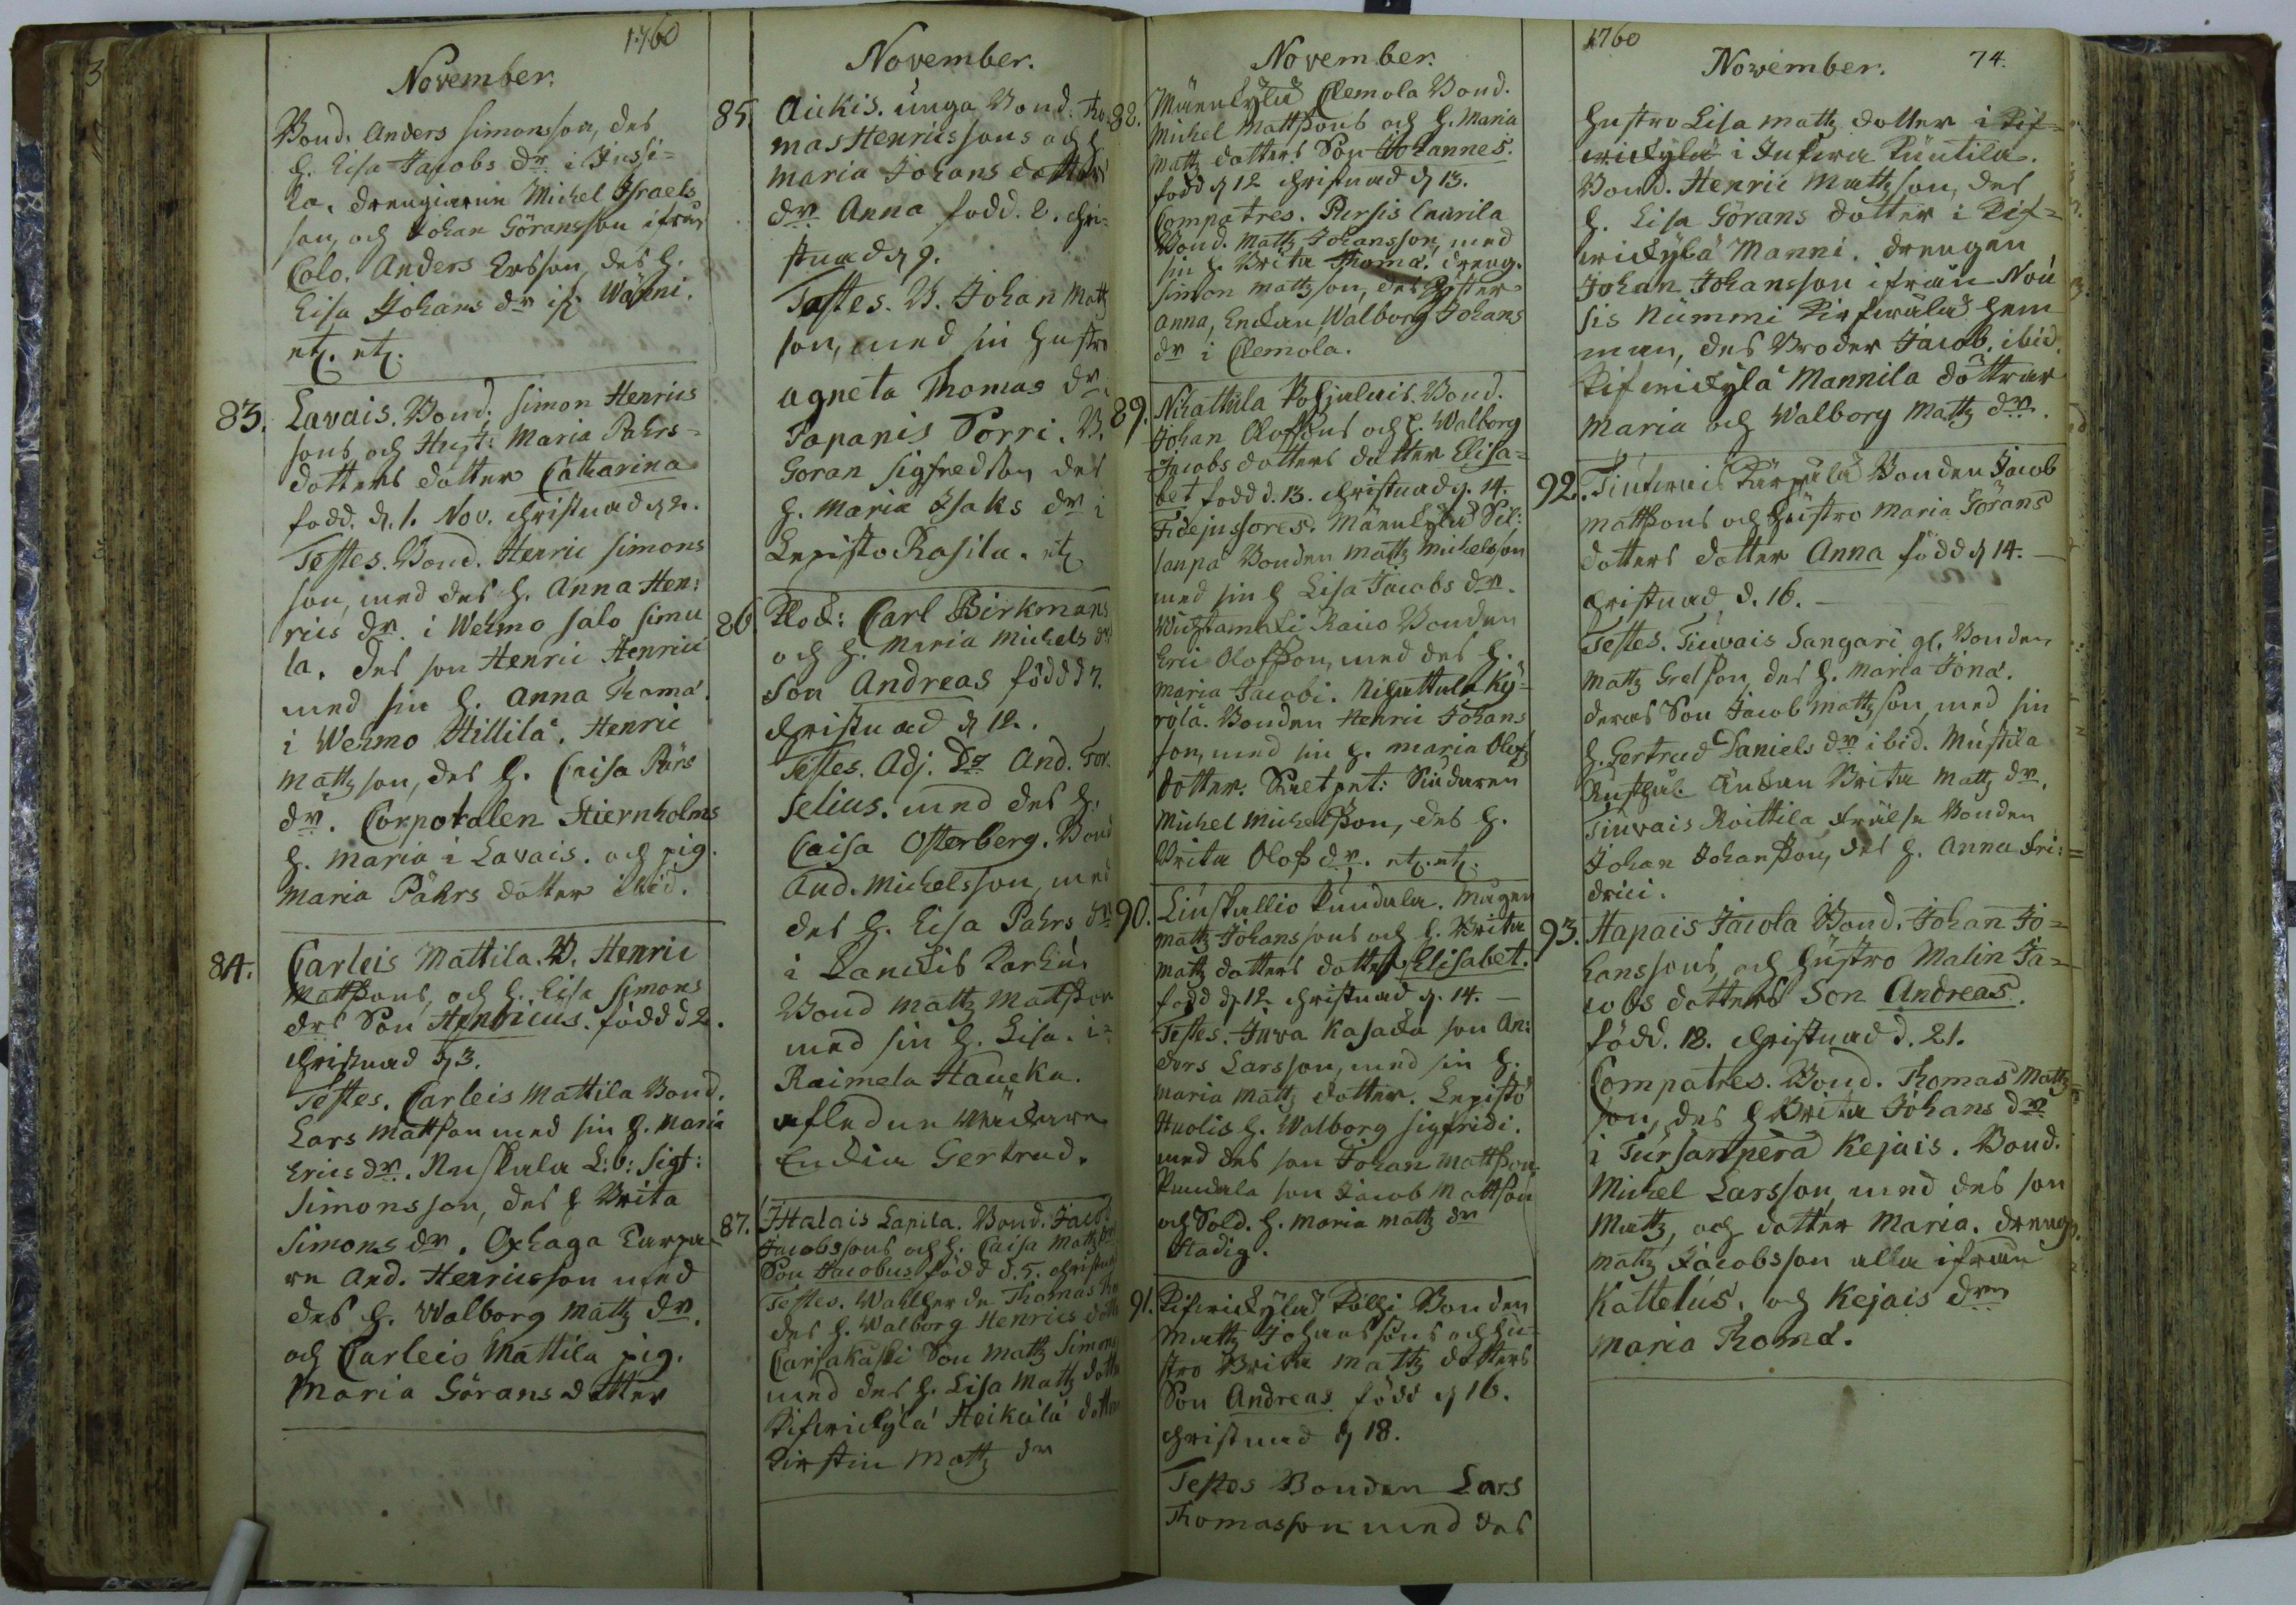 1760
November.
Bond. Anders Simonsson, des
h. Lisa Jacobs dr. i Jussi-
la. drengiarne Michel Israels
son, och Johan Göransson ifrån
Colo. Anders Ersson des h.
Lisa Johans dr if. Wänni.
etc. etc.
83. Lavais. Bond. Simon Henrics
sons och Hust: Maria Pahrs-
dotters dotter Catharina
född. d. 1. Nov. Christnad d 2.
Testes. Bond. Henric Simons
son, med des h. Anna Hen:
rics dr. i Wehmo salo Simu
la. des son Henric Henrici
med sin h. Anna Thomæ.
i Wehmo Hillilä. Henric
Mattz son, des h. Caisa Pärs
dr. Corporalen Stiernholms
h. Maria i Lavais. och pig.
Maria Pährs dotter ibid.
84. Carleis Mattila. B. Henric
Mattsons, och h. Lisa Simons
drs Son Henricus. född d 2.
Christnad d 3.
Testes. Carleis Mattila Bond.
Lars Mattson med sin h. Maria
Erics dr. Ruskala L:b: Sigf:
Simonsson, des h Brita
Simons dr. Oxhaga
And. Henricsson med
des h. Walborg Mattz dr.
och Carleis Mattila pig.
Maria Görans dotter
November.
85. Auckis. unga Bond. Tho-
mas Henricssons och h
Maria Johans dotters
dr Anna född. 2. Chri-
stnad d 9.
Testes. B. Johan Mattz
son, med sin hustro
Agneta Thomas dr.
Tapanis Sorri. B.
Göran Sigfredson des
h. Maria Isaks dr i
Lepisto Rasila. etc
86. Klock: Carl Birkmans
och h. Maria Michels dr
Son Andreas född d 7.
Christnad d 12.
Testes. Adj. Dr And. For-
selius. med des h.
Caisa Osterberg. Bond
And. Michelsson, med
des h. Lisa Pahrs dr
i Lanckis Karhu.
Bond Mattz Mattson
med sin h. Lisa. i
Raimela Haucka.
afledne
Enckia Gertrud.
87. Ihalais Lapila. Bond. Jacob
Jacobssons och h. Caisa Mattz dr
Son Jacobus född d. 5. Christnad
Testes. Thomas
des h. Walborg Henrics dotter
Carjakoski Son Mattz Simons
med des h. Lisa Mattz dotter
Kifwickylä Heikälä dotter
Kirstin Mattz dr
November.
88. Männkylä Clemola Bond.
Michel Mattsons och h. Maria
Mattz dotters Son Johannes.
född d 12 Christnad d 13.
Compatres. Persis Caurila
Bond. Mattz Johansson, med
sin h. Brita Thomæ. dreng.
Simon Mattzson, des syster
Anna, Enckan Walborg Johans
dr i Clemola.
89. Nihattula Pohjalais. Bond.
Johan Olofsons och h. Walborg
Jacobs dotters dotter Elisa-
bet född d. 13. Christnad d. 14.
Fidejussores. Männkylä Sil:
sanpä Bonden Mattz Michelsson
med sin h Lisa Jacobs dr.
Wuhtamäki Bonden
Eric Olofsson, med des h.
Maria Jacobi. Nihattula Ky-
rölä. Bonden Henric Johans
son, med sin h. Maria Olofs
dotter.
Michel Michelsson, des h.
Brita Olofs dr. etc. etc.
90. Linskallio Pundala. Mågen
Mattz Johanssons och h. Brita
Mattz dotters dotter Elisabet.
född d. 12. Christnad d. 14.
Testes. Juva Kasacka son An:
ders Larsson, med sin h.
Maria Mattz dotter. Lepistö
Huolis h. Walborg Sigfridi.
med des son Johan Mattson
Pundala son Jacob Mattson
och Sold. h. Maria Mattz dr
Stadig.
91. Kifwickylä Pölhi Bonden
Mattz Johanssons och hu-
stro Brita Mattz dotters
Son Andreas född d 16.
Christnad d 18.
Testes Bonden Lars
Thomasson med des
1760
November.
74.
hustro Lisa Mattz dotter i Kif-
wickylä i Juckwa Puutila.
Bond. Henric Mattzson, des
h. Lisa Görans dotter i Kif-
wickylä Manni. drengen
Johan Johansson ifrån Nou
sis Nummi hem
man, des Broder Jacob. ibid.
Kifwickylä Mannila döttrar
Maria och Walborg Mattz dr.
92. Bonden Jacob
Mattsons och hustro Maria Görans
dotters dotter Anna född d 14.
Christnad d. 16.
Testes. Tiuvais Sangari gl. Bonden
Mattz Grelson, des h. Maria Jonæ.
deras Son Jacob Mattzson, med sin
h. Gertrud Daniels dr ibid. Mustila
Änckan Brita Mattz dr.
Tiuvais Roittila frälse Bonden
Johan Johansson, des h. Anna Fri:
drici.
93. Hapais Jacola Bond. Johan Jo-
hanssons, och Hustro Malin Ja-
cobs dotters Son Andreas.
född. 18. Christnad d. 21.
Compatres. Bond. Thomas Mattz
son, des h Brita Johans dr
i Tursanperä Kejais. Bond.
Michel Larsson, med des son
Mattz, och dotter Maria. dreng.
Mattz Jacobsson alla ifrån
Kattelus. och Kejais drn
Maria Thomæ.